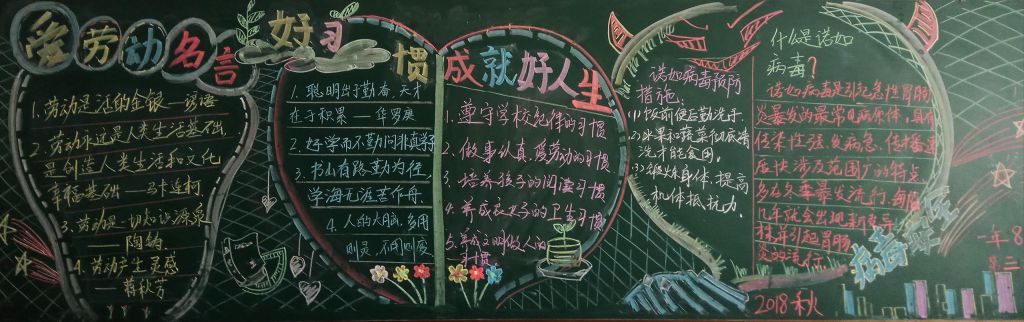 爱劳动名言
1. 劳动是活的金银——谚语
2. 劳动永远是人类生活基础.
是创造人类生活和文化
幸福基础——马卡连柯
3. 劳动是一切知识源泉
——陶铸
4. 劳动产生灵感
——蒋秋芳
好习惯成就好人生
1. 聪明出于勤奋, 天才
在于积累——华罗庚
2. 好学而不勤问非真学
3. 书山有路勤为径,
学海无涯苦作舟.
4. 人的大脑, 多用
则灵, 不用则废
1. 遵守学校纪律的习惯
2. 做事认真, 爱劳动的习惯
3. 培养孩子的阅读习惯
4. 养成良好的卫生习惯
5. 养成文明做人的
习惯
诺如病毒预防
措施:
(1) 饭前便后勤洗手.
(2) 水果和蔬菜彻底清
洗才能食用.
(3) 锻炼身体, 提高
机体抵抗力.
什么是诺如
病毒?
诺如病毒是引起急性胃肠
炎暴发的最常见病原体, 具有
传染性强, 发病急, 传播速
度快, 涉及范围广的特点
多在冬季暴发流行, 每隔
几年就会出现新变异
株并引起胃肠
炎的流行
病毒
2018秋
一年8